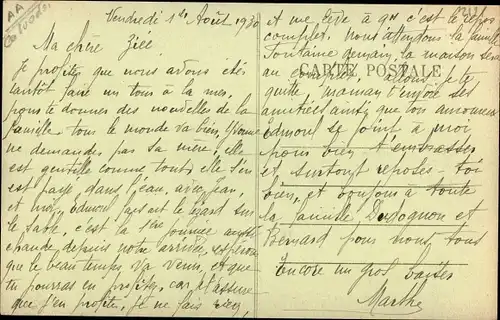 Vendredi 1er Août 1930
Ma chère Zizi
Je profite que nous avons été
tantôt faire un tour à la mer,
pour te donner des nouvelles de la
famille. Tous le monde va bien,
ne demandes pas sa mère, elle
est gentille comme tout, elle s'en
est payé dans l'eau, avec Jean,
et moi, Edmond fait le lézard sur
le sable, c'est la 1ère journée aussi
chaude depuis notre arrivée, espérons
que le beau temps va venir, et que
tu pourras en profiter, car je t'assure
que j'en profite, je ne fais rien,
CARTE POSTALE
et me lève à 9h c'est le repos
complet. Nous attendons la famille
Fontaine demain, la maison sera
au complet. Jean et
maman t'envoie ses
amitiés ainsi que ton amoureux
Edmond se joint à moi
pour bien t'embrasser
et surtout reposes-toi
bien, et bonjour à toute
la famille et
Bernard pour nous tous
Encore un gros baiser
Marthe